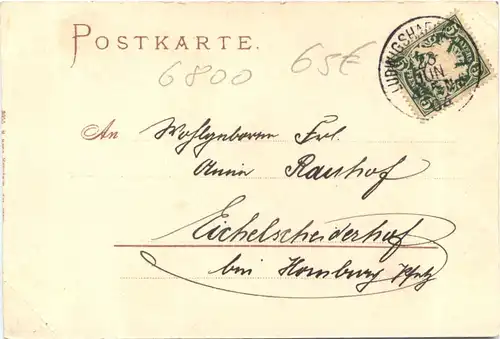 POSTKARTE.
6800 65€
LUDWIGSHAF
28
JUN
An Wohlgeboren Frl.
Annie Rauhof
Eichelscheiderhof
bei Homburg Pfalz